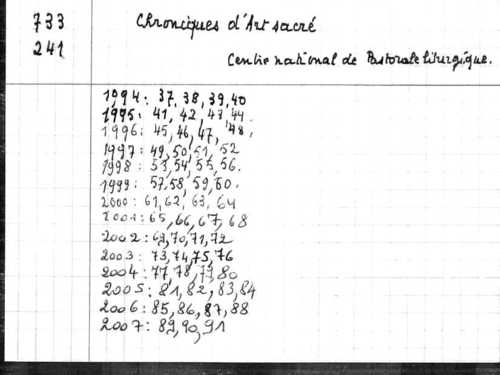 733 Chroniques d'Art sacré
241 Centre national de Pastorale liturgique.
1994: 37, 38, 39, 40
1995: 41, 42, 43, 44.
1996: 45, 46, 47, 48.
1997: 49, 50, 51, 52
1998: 53, 54, 55, 56.
1999: 57, 58, 59, 60.
2000: 61, 62, 63, 64
2001: 65, 66, 67, 68
2002: 69, 70, 71, 72
2003: 73, 74, 75, 76
2004: 77, 78, 79, 80
2005: 81, 82, 83, 84
2006: 85, 86, 87, 88
2007: 89, 90, 91